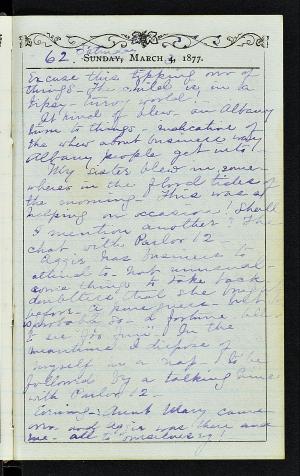 62 Saturday
SUNDAY, MARCH 4, 1877.
Excuse this tipping over of
things - The child is in a
tipsy-turvy world!
It kind of blew an Albany
turn to things - indicative of
the whew about business way
Albany people get into!
My sister blew in some
where in the flood tides of
the morning. This was a
helping on occasion! Shall
I mention another? The
chat with Parlor 12 -
Aggie has business to
attend to - not unusual -
some things to take back
doubtless that she
before - a
so - a fortune
to see In the
meantime I dispose of
myself in a nap - to be
followed by a talking time
with Parlor 12 -
Evening - Aunt Mary came
over and Aggie was there and
me - all to ourselves!